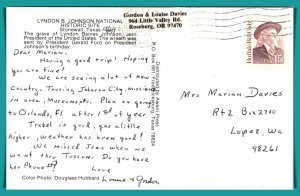 LYNDON B. JOHNSON NATIONAL
HISTORIC SITE
Stonewall, Texas
The grave of Lyndon Baines Johnson, 36th
President of the United States. The wreath was
sent by President Gerald Ford on President
Johnson's birthday.
Gordon & Louise Davies
964 Little Valley Rd.
Roseburg, OR 97470
Dear Marian,
Having a good trip! Hoping
you are fine!
We are seeing a lot of new
country. Touring Johnson City. Missions
in area, Museums etc. Plan on going
to Orlando, Fl after 1st of year
Trebel is good, gas a little
higher, weather has been good!
We missed Jean when we
went thru Tuscon. Do you have
her Phone #?
Love
Louise & Gordon
Color Photo: Douglass Hubbard
Mrs Marian Davies
Rt 2 Box 2200
Lopez, Wa
98261